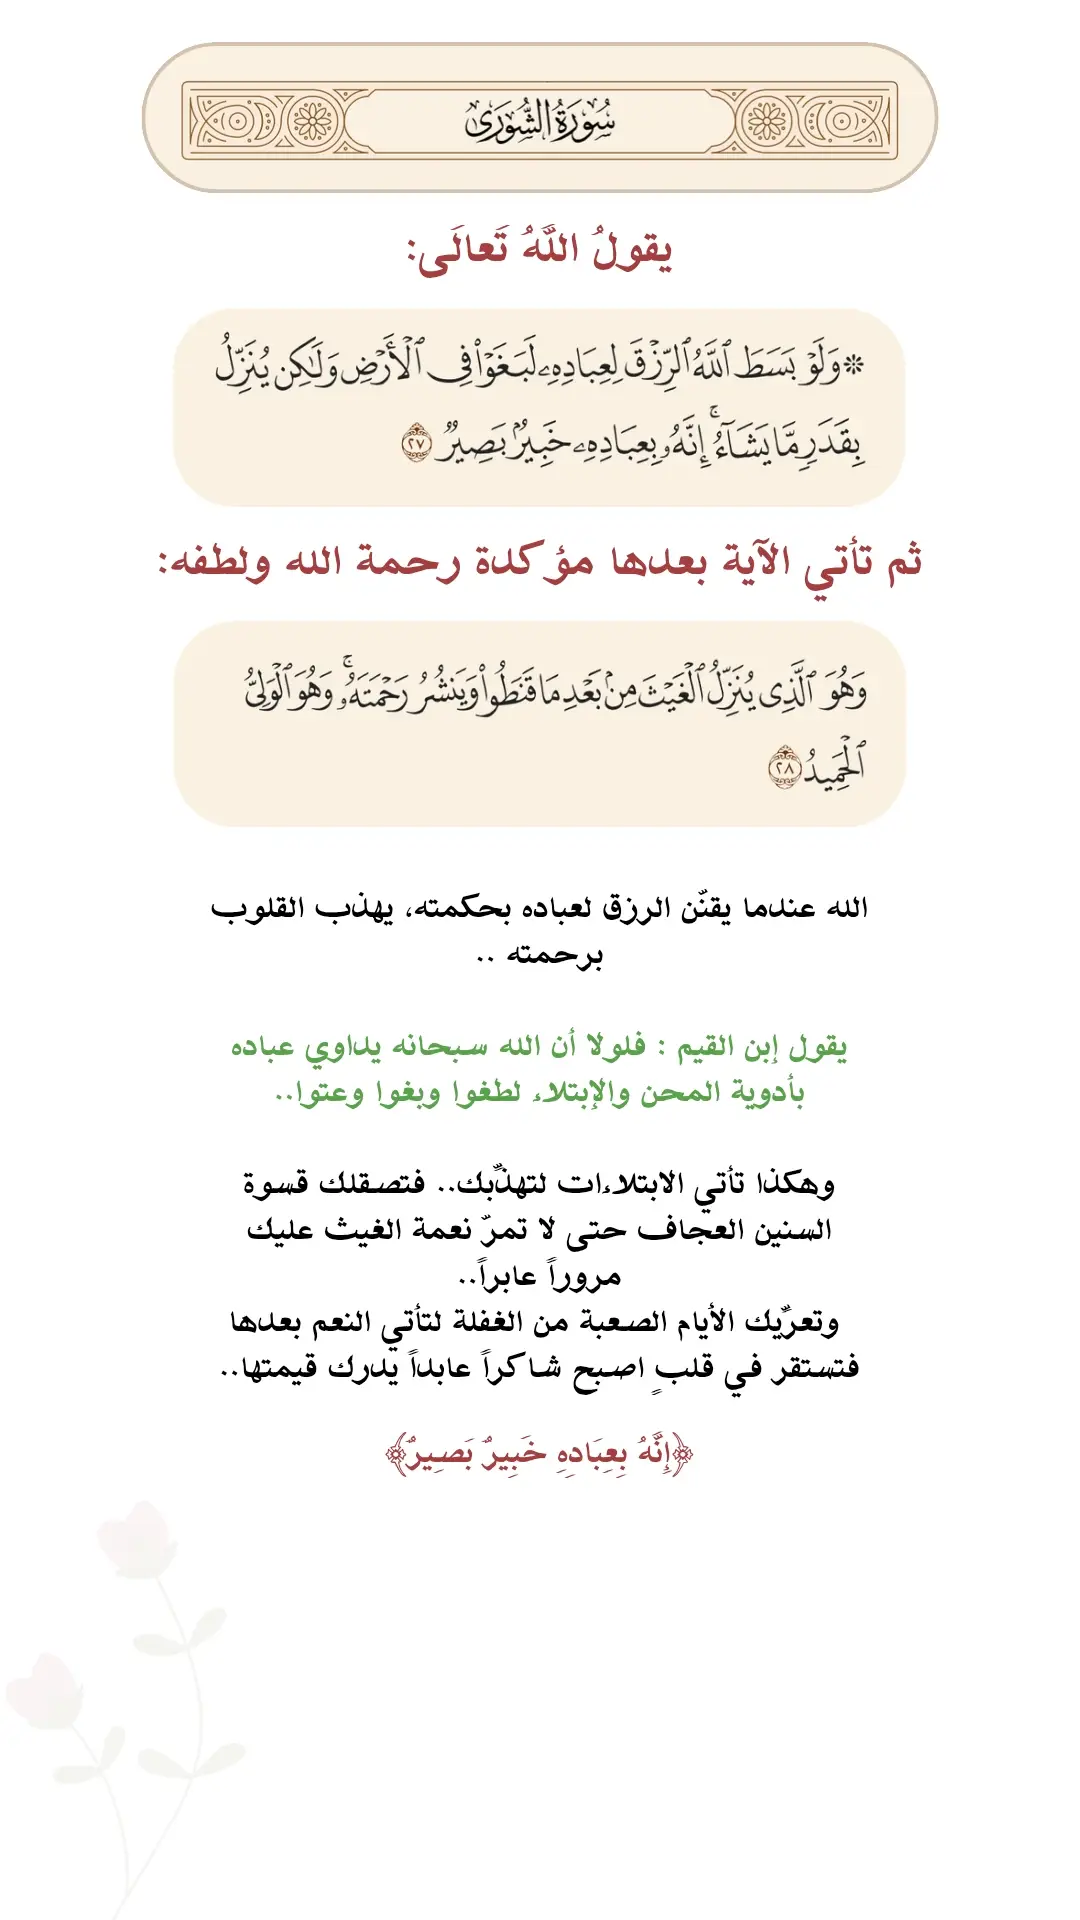 سُورَةُ الشُّورَىٰ
يقولُ اللَّهُ تَعالَى:
۞ وَلَوْ بَسَطَ ٱللَّهُ ٱلرِّزْقَ لِعِبَادِهِۦ لَبَغَوْا۟ فِى ٱلْأَرْضِ وَلَٰكِن يُنَزِّلُ
بِقَدَرٍ مَّا يَشَآءُ ۚ إِنَّهُۥ بِعِبَادِهِۦ خَبِيرٌۢ بَصِيرٌ ٢٧
ثم تأتي الآية بعدها مؤكدة رحمة الله ولطفه:
وَهُوَ ٱلَّذِى يُنَزِّلُ ٱلْغَيْثَ مِنۢ بَعْدِ مَا قَنَطُوا۟ وَيَنشُرُ رَحْمَتَهُۥ ۚ وَهُوَ ٱلْوَلِىُّ
ٱلْحَمِيدُ ٢٨
الله عندما يقنّن الرزق لعباده بحكمته، يهذب القلوب
برحمته ..
يقول إبن القيم : فلولا أن الله سبحانه يداوي عباده
بأدوية المحن والإبتلاء لطغوا وبغوا وعتوا..
وهكذا تأتي الابتلاءات لتهذّبك.. فتصقلك قسوة
السنين العجاف حتى لا تمرّ نعمة الغيث عليك
مروراً عابراً..
وتعرّيك الأيام الصعبة من الغفلة لتأتي النعم بعدها
فتستقر في قلبٍ اصبح شاكراً عابداً يدرك قيمتها..
﴿إِنَّهُ بِعِبَادِهِ خَبِيرٌ بَصِيرٌ﴾